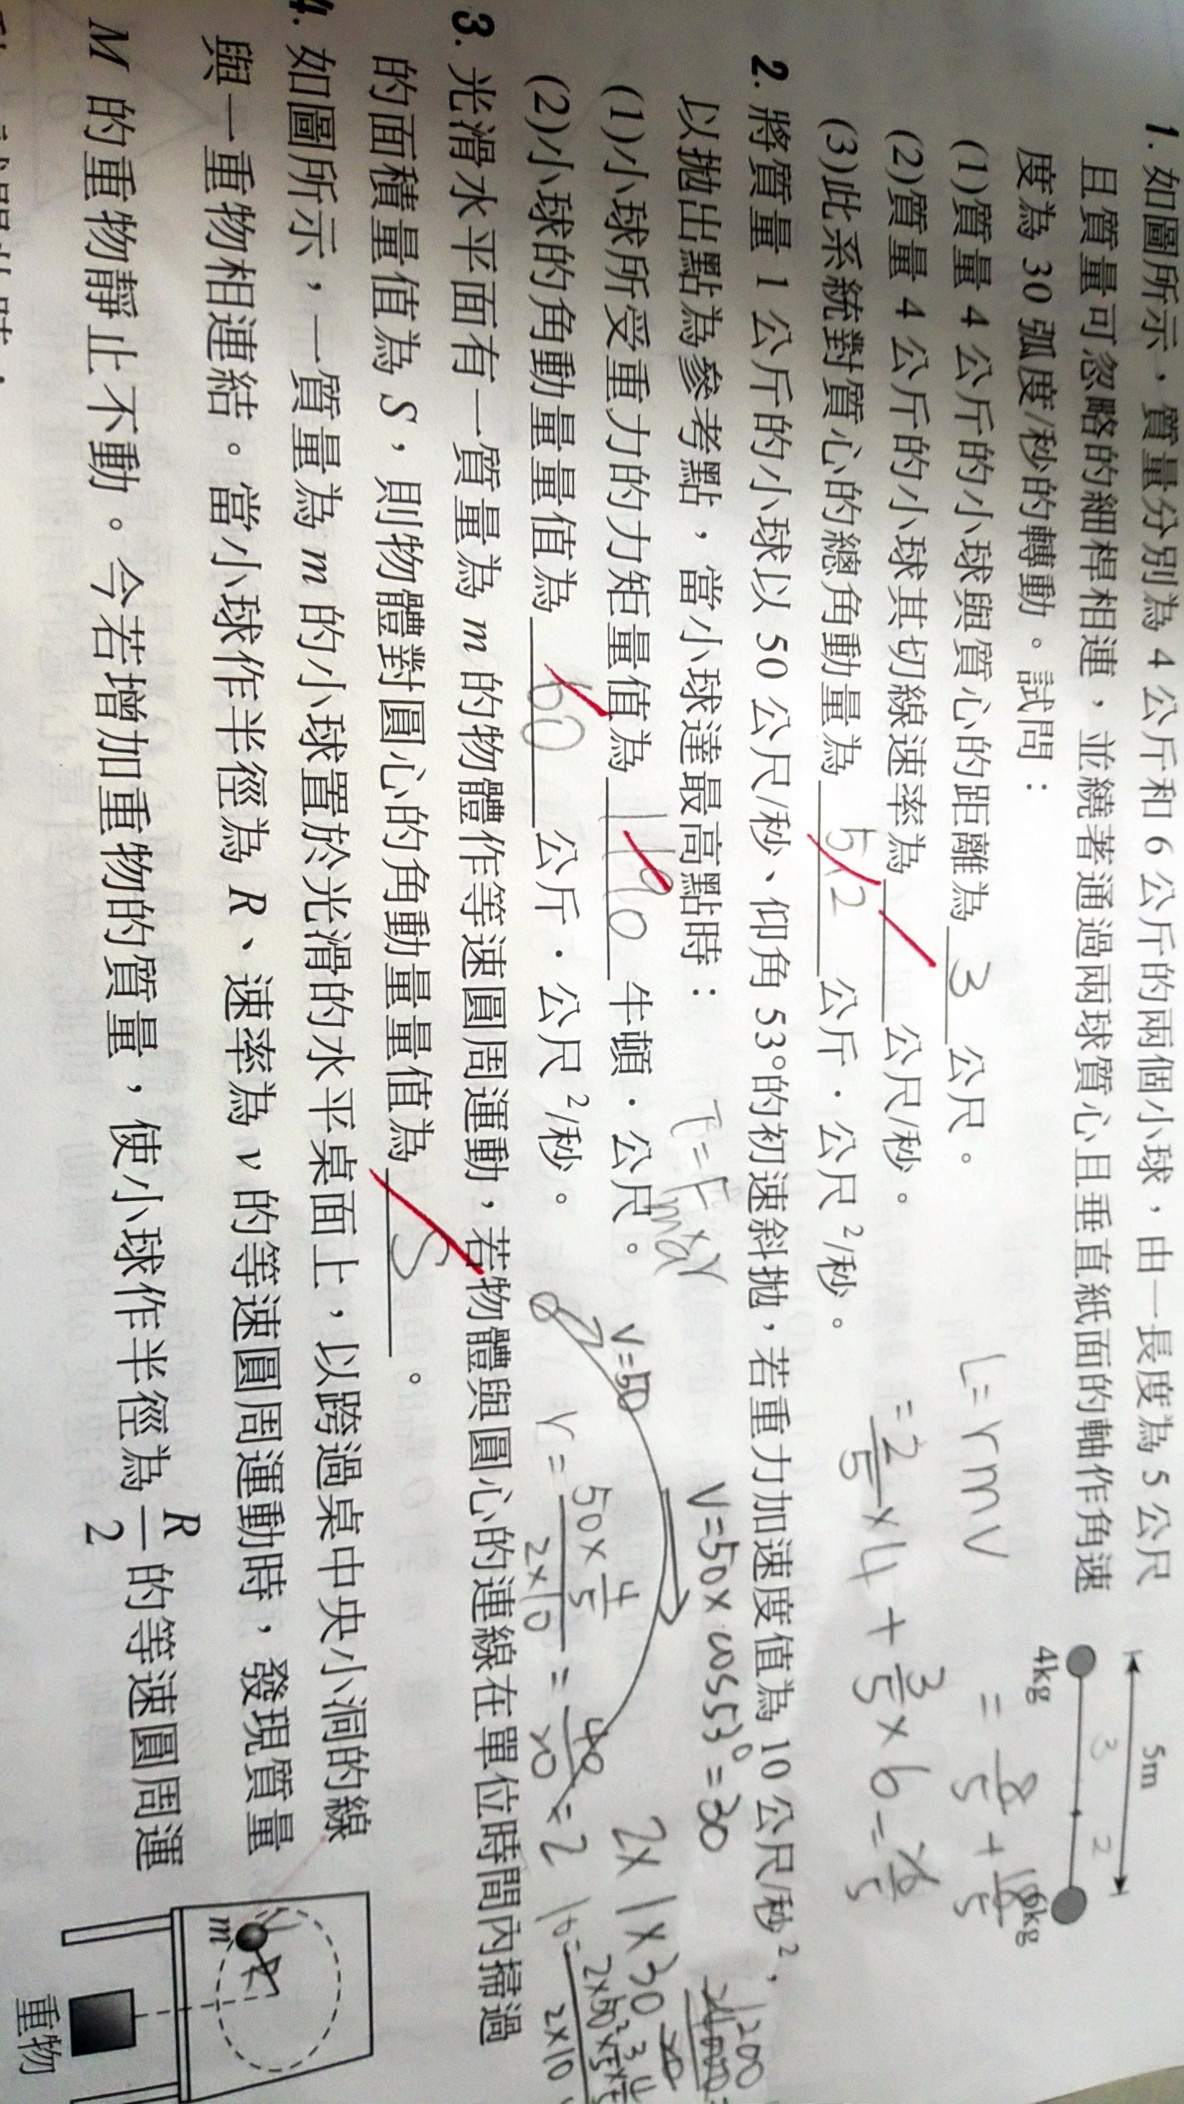 1. 如圖所示，質量分別為 4 公斤和 6 公斤的兩個小球，由一長度為 5 公尺
且質量可忽略的細桿相連，並繞著通過兩球質心且垂直紙面的軸作角速
度為 30 弧度/秒的轉動。試問：
(1)質量 4 公斤的小球與質心的距離為 3 公尺。
(2)質量 4 公斤的小球其切線速率為 公尺/秒。
(3)此系統對質心的總角動量為 5.2 公斤．公尺²/秒。
5m
3 2
4kg
6kg
L=rmv
= 8/5 + 18/5
= 2/5 ×4 + 3/5 ×6 =
2. 將質量 1 公斤的小球以 50 公尺/秒、仰角 53°的初速斜拋，若重力加速度值為 10 公尺/秒²，
以拋出點為參考點，當小球達最高點時：
(1)小球所受重力的力矩量值為 牛頓．公尺。
(2)小球的角動量量值為 60 公斤．公尺²/秒。
τ=F×r
mg
V=50
V=50×cos53°=30
r= 50×4/5 / 2×10 = 40/20 =2
2×1×30
1200
3. 光滑水平面有一質量為 m 的物體作等速圓周運動，若物體與圓心的連線在單位時間內掃過
的面積量值為 S，則物體對圓心的角動量量值為 S 。
4. 如圖所示，一質量為 m 的小球置於光滑的水平桌面上，以跨過桌中央小洞的線
與一重物相連結。當小球作半徑為 R、速率為 v 的等速圓周運動時，發現質量
M 的重物靜止不動。今若增加重物的質量，使小球作半徑為 R/2 的等速圓周運
m
R
重物